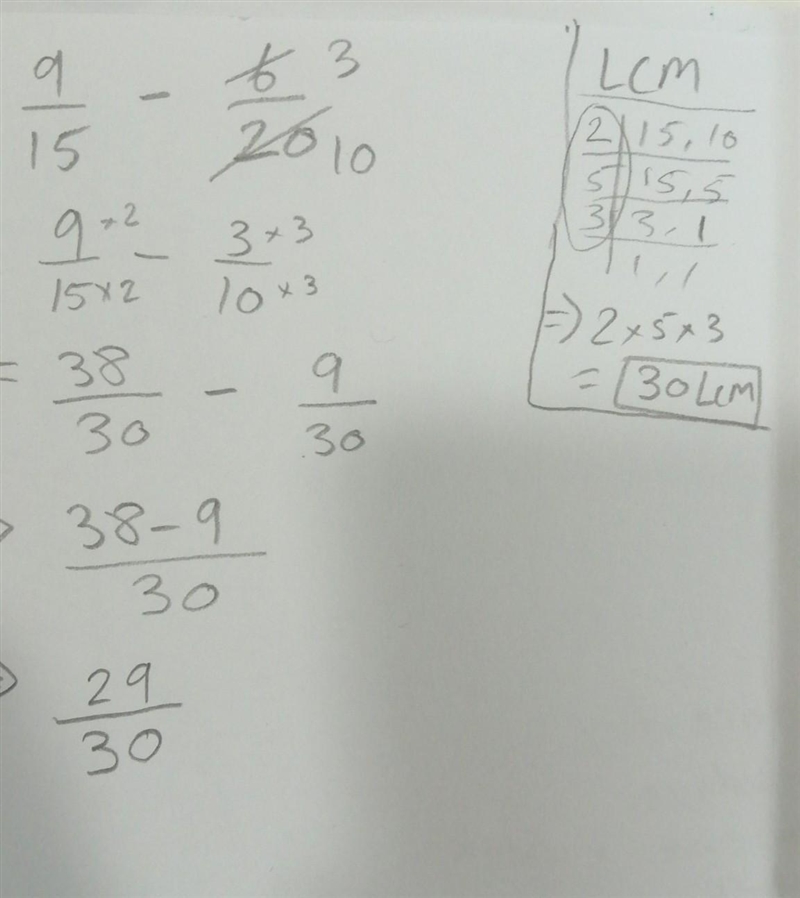 9/15 - 6/20 3/10
9×2/15×2 - 3×3/10×3
= 38/30 - 9/30
38-9/30
29/30
LCM
2 | 15, 10
5 | 15, 5
3 | 3, 1
1, 1
⇒ 2×5×3
= 30 LCM